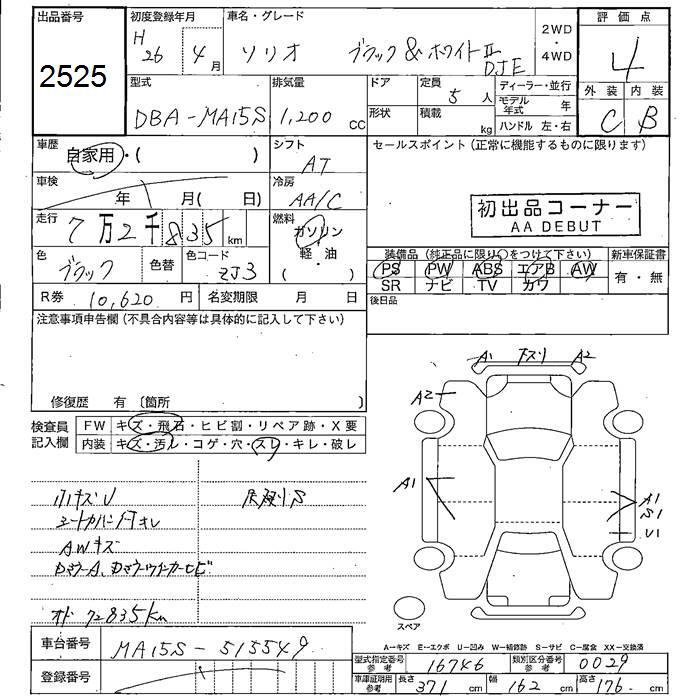 出品番号 初度登録年月 車名・グレード 2WD・4WD 評価点
2525 H 26 4月 ソリオ ブラック&ホワイトⅡ DJE 4
型式 排気量 ドア 定員 ディーラー・並行 外装 内装
DBA-MA15S 1,200 cc 5人 モデル年式 年 C B
形状 積載 kg ハンドル 左・右
車歴 自家用・( ) シフト AT セールスポイント(正常に機能するものに限ります)
車検 年 月( 日) 冷房 AA/C
初出品コーナー
AA DEBUT
走行 7万2千835km 燃料 ガソリン・軽油 ( )
装備品(純正品に限り○をつけて下さい) 新車保証書
色 ブラック 色替 色コード ZJ3
PS PW ABS エアB AW 有・無
SR ナビ TV カワ
R券 10,620円 名変期限 月 日 後日品
注意事項申告欄(不具合内容等は具体的に記入して下さい)
修復歴 有 〔箇所 〕
検査員記入欄 FW キズ・飛石・ヒビ割・リペア跡・X要
内装 キズ・汚レ・コゲ・穴・スレ・キレ・破レ
A1 キズリ A2
A2
A1
A1
S1
U1
小キズU
AWキズ
オド 72835km
スペア
A-キズ E-エクボ U-凹み W-補修跡 S-サビ C-腐食 XX-交換済
車台番号 MA15S-515549
型式指定番号 参考 16746 類別区分番号 参考 0029
登録番号
車庫証明用 参考 長さ 371 cm 幅 162 cm 高さ 176 cm